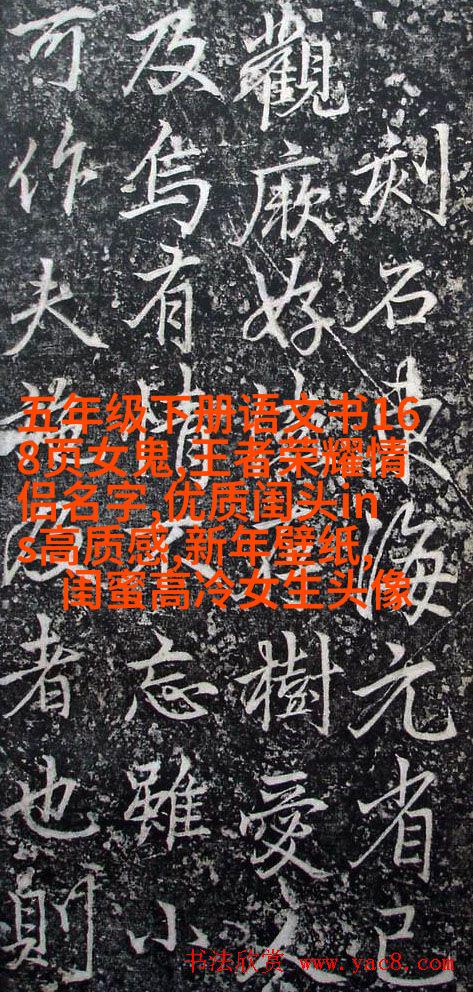 刻石東海元省已
觀厥好樹愛
及烏有情忘雖小
可作夫者也則
五年级下册语文书16
8页女鬼,王者荣耀情
侣名字,优质闺头in
s高质感,新年壁纸,
闺蜜高冷女生头像
书法欣赏 www.yac8.com